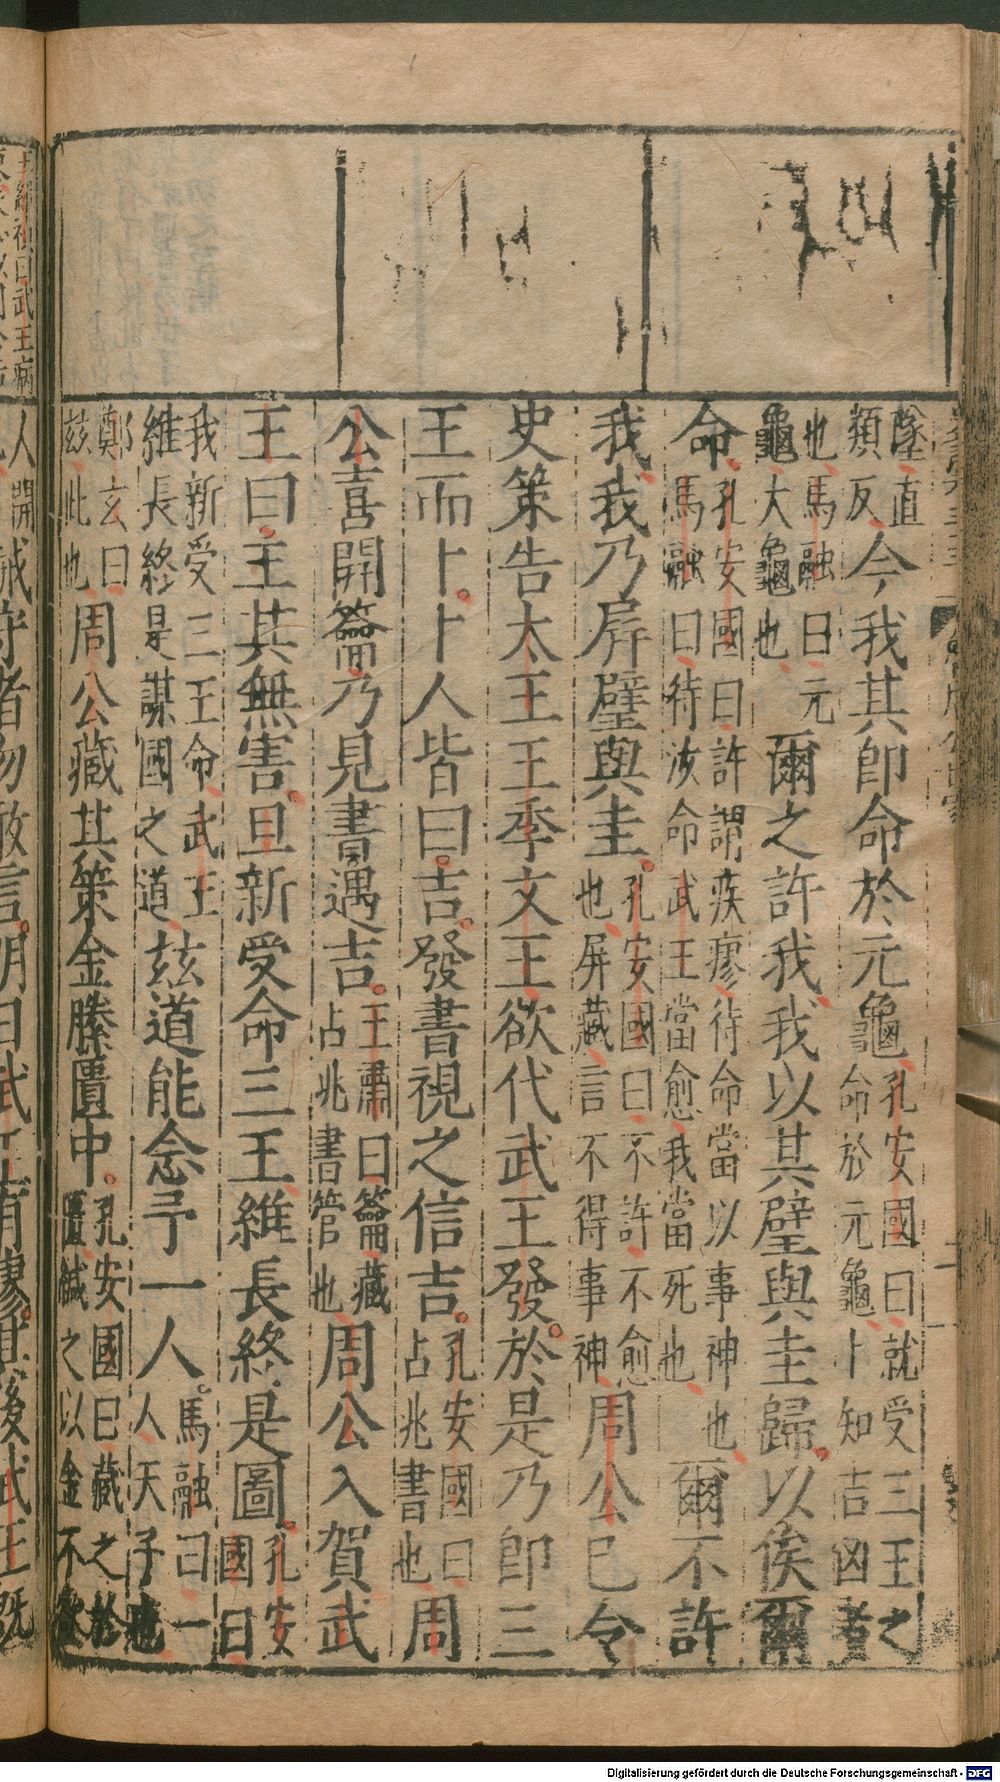 墜直類反今我其卽命於元龜孔安國曰就受三王之命於元龜卜知吉凶者
也馬融曰元龜大龜也爾之許我我以其璧與圭歸以俟爾
命孔安國曰許謂疾瘳待命當以事神也馬融曰待汝命武王當愈我當死也爾不許
我我乃屏璧與圭孔安國曰不許不愈也屏藏言不得事神周公已令
史策告太王王季文王欲代武王發於是乃卽三
王而卜卜人皆曰吉發書視之信吉孔安國曰占兆書也周
公喜開籥乃見書遇吉王肅曰籥藏占兆書管也周公入賀武
王曰王其無害旦新受命三王維長終是圖孔安國曰
我新受三王命武王維長終是謀國之道玆道能念予一人馬融曰一人天子也
鄭玄曰玆此也周公藏其策金縢匱中孔安國曰藏之於匱緘之以金不欲
人開誡守者勿敢言明日武王有瘳其後武王旣
王維禎曰武王病
Digitalisierung gefördert durch die Deutsche Forschungsgemeinschaft - DFG